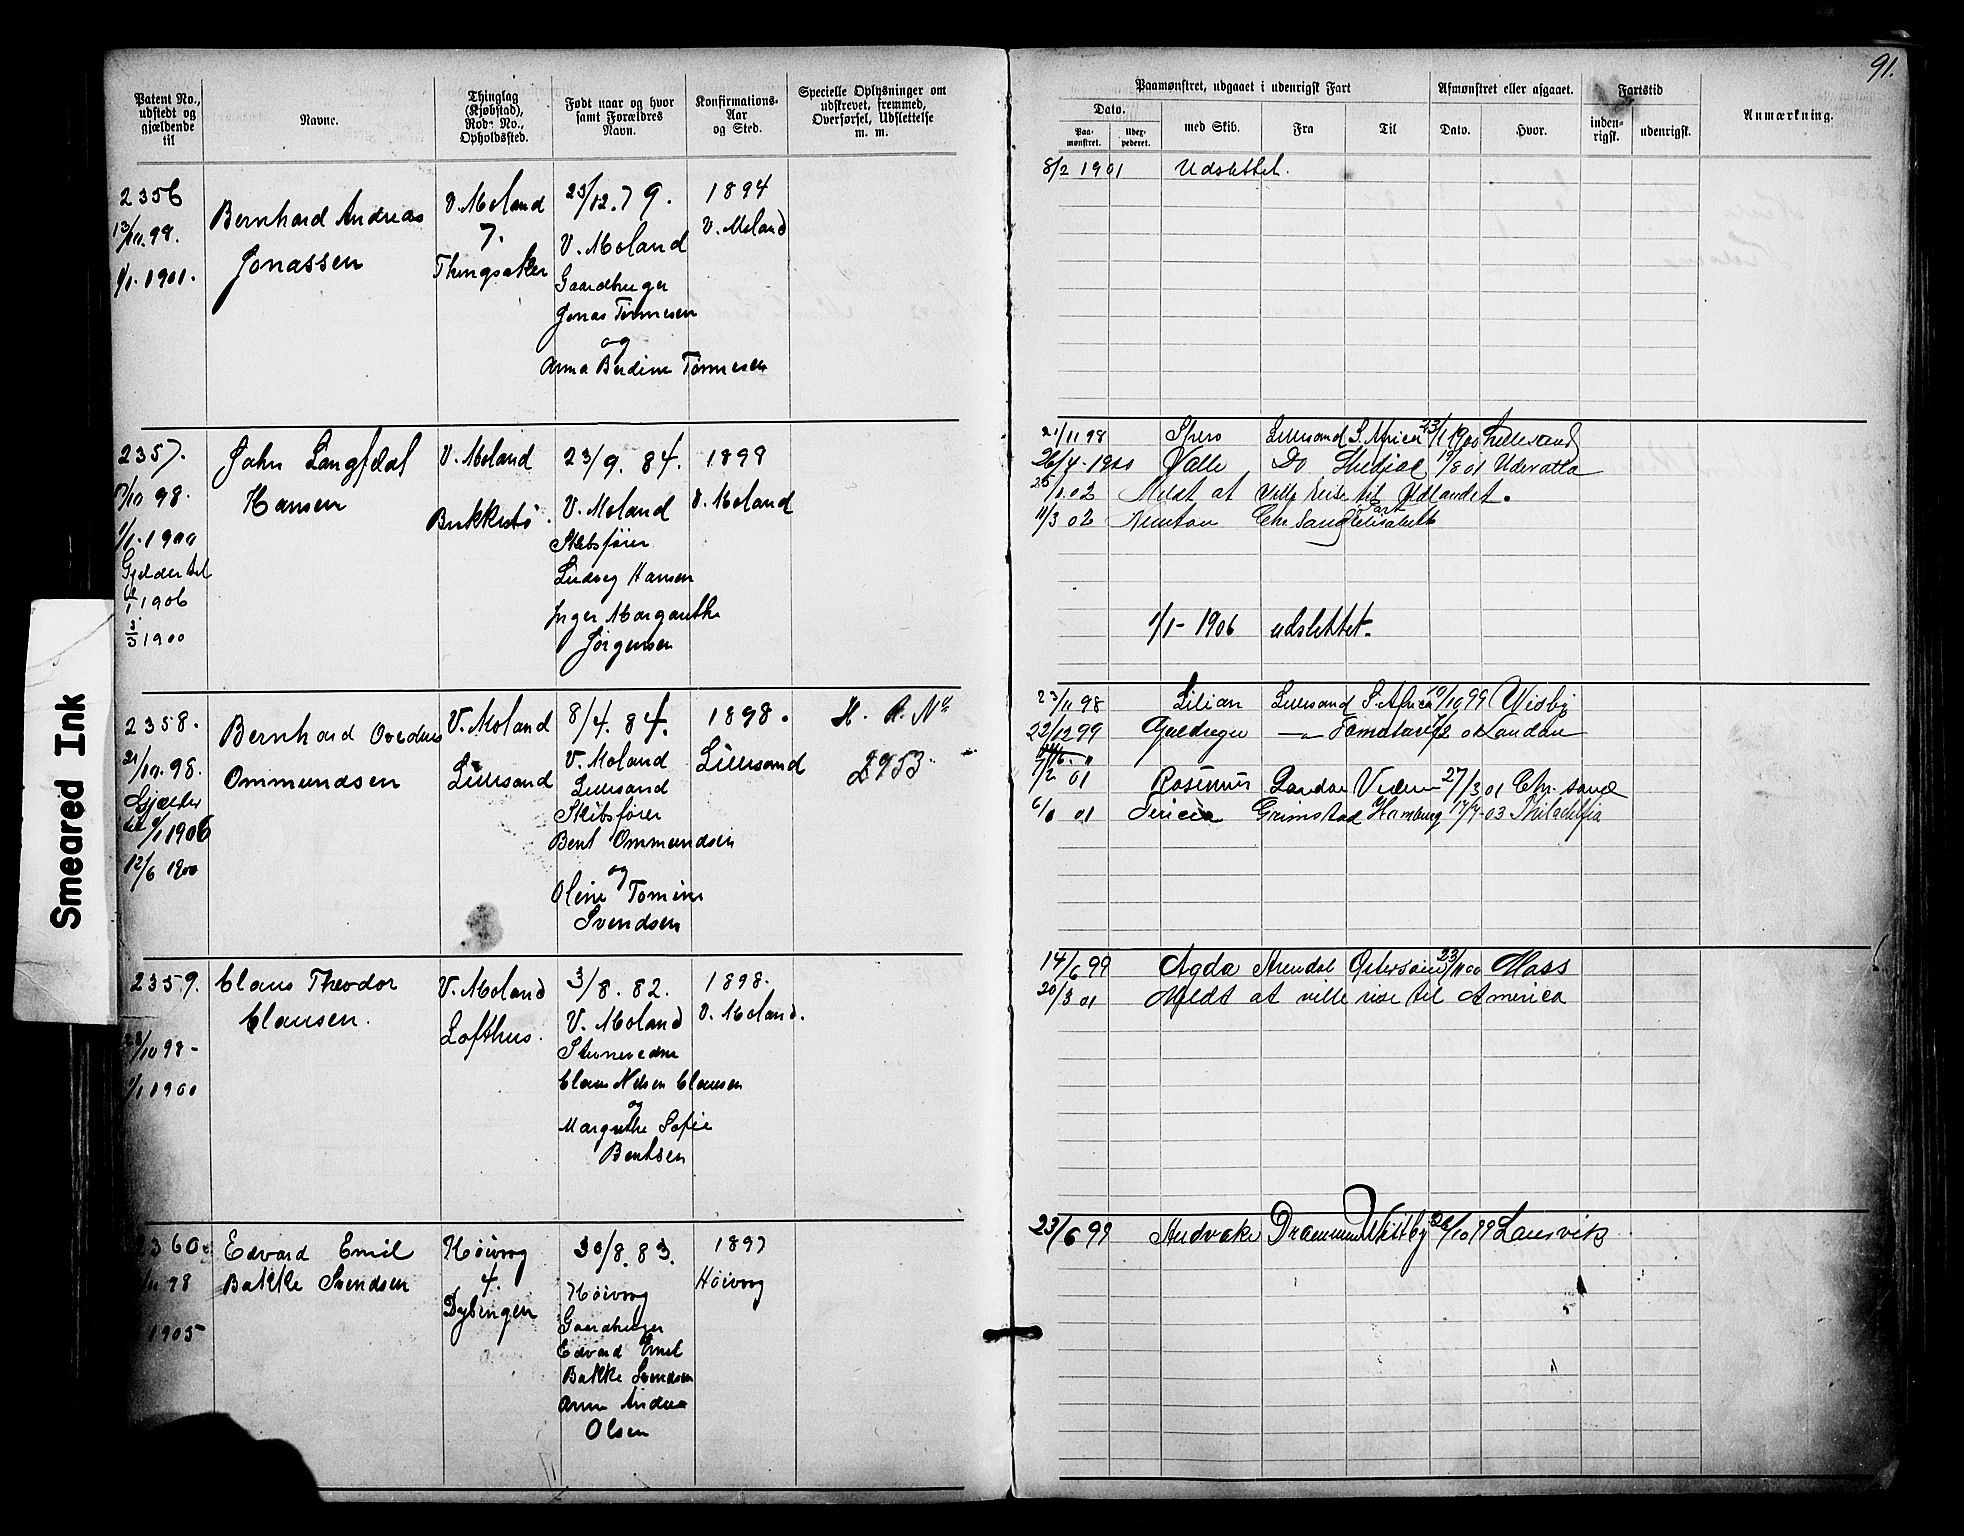 91.
Patent No., udstedt og gjældende til
Navne.
Thinglag (Kjøbstad), Rode No., Opholdssted.
Født naar og hvor samt Forældres Navn.
Konfirmations-Aar og Sted.
Specielle Oplysninger om udskrevet, fremmed, Overførsel, Udslettelse m. m.
Paamønstret, udgaaet i udenrigsk Fart
Dato.
Paamønstret.
Udexpederet.
med Skib.
Fra
Til
Afmønstret eller afgaaet.
Dato.
Hvor.
Fartstid
indenrigsk.
udenrigsk.
Anmærkning.
2356
13/10.98.
1/1.1901.
Bernhard Andreas
Jonassen
V. Moland
7.
Thingsaker
23/12.79.
V. Moland
Gaardbruger
Jonas Tørmesen
og
Anna Berdine Tørmesen
1894
V. Moland
8/2 1901 Udslettet.
2357.
/10 98.
1/1.1900
Gjelder til
1/1 1906
3/3 1900
John Langfdal
Hansen
V. Moland
Brekkestø.
23/9.84.
V. Moland
Skibsfører
Ludvig Hansen
Inger Margarethe
Jørgensen
1898
V. Moland
21/11 98 Spero Lillesand S. Africa 23/1 1900 Lillesand
26/4-1900 Valle Do Shediac 19/8 01 Udevalla
25/1.02 Meldt at ville reise til Udlandet.
11/3 02 Newton Chr Sand Port Elisabeth
1/1-1906 udslettet.
2358.
21/10.98.
Gjælder
til 1/1 1906
12/6 1900
Bernhard Ovedius
Ommundsen
V. Moland
Lillesand
8/4.84.
V. Moland
Lillesand
Skibsfører
Bent Ommundsen
og
Oline Tomine
Svendsen
1898.
Lillesand
H. R. No
2953
23/11 98 Lilian Lillesand S. Africa 10/10 99 Wisby
22/12 99 Guldregn London
1/2 01 Rosenius London 27/3 01 Chr. sand
6/ 01 Grimstad Hamburg 17/7-03 Philadelfia
2359.
28/10 98-
1/1 1900
Claus Theodor
Clausen.
V. Moland
Lofthus.
3/8.82.
V. Moland
Claus Nilsen Clausen
og
Margrethe Sofie
Bentsen
1898.
V. Moland.
14/6 99 Agda Arendal 23/ 00 Mass
20/3 01 Meldt at ville reise til America
2360.
/11 98
1905
Edvard Emil
Bakke Svendsen
Høivog
4.
Dybingen
30/8.83.
Høivog
Gaardbruger
Edvard Emil
Bakke Svendsen
Anne Andrea
Olsen
1897
Høivog
23/6 99 Andvake Drammen Whitby 26/10 99 Laurvik
Smeared Ink